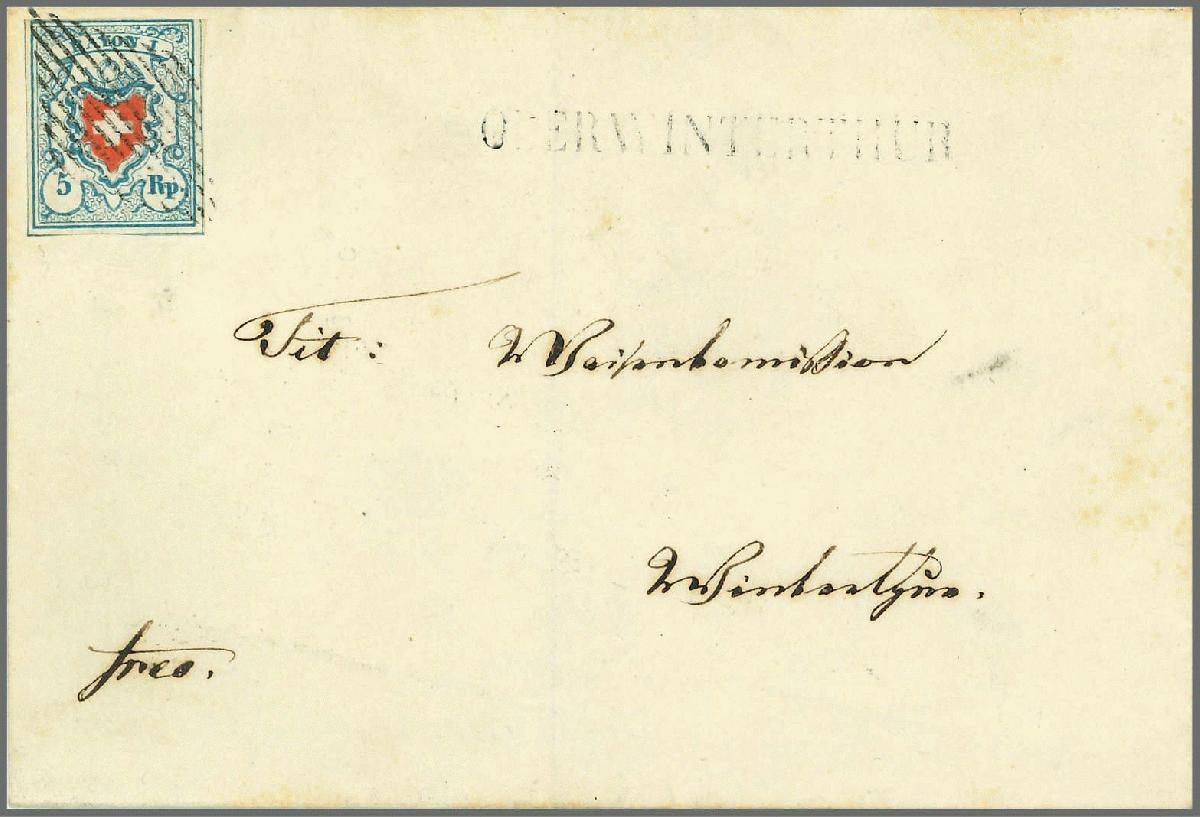 RAYON I
5 Rp.
OBERWINTERTHUR
Tit: Waisenkomission
Winterthur.
frco.